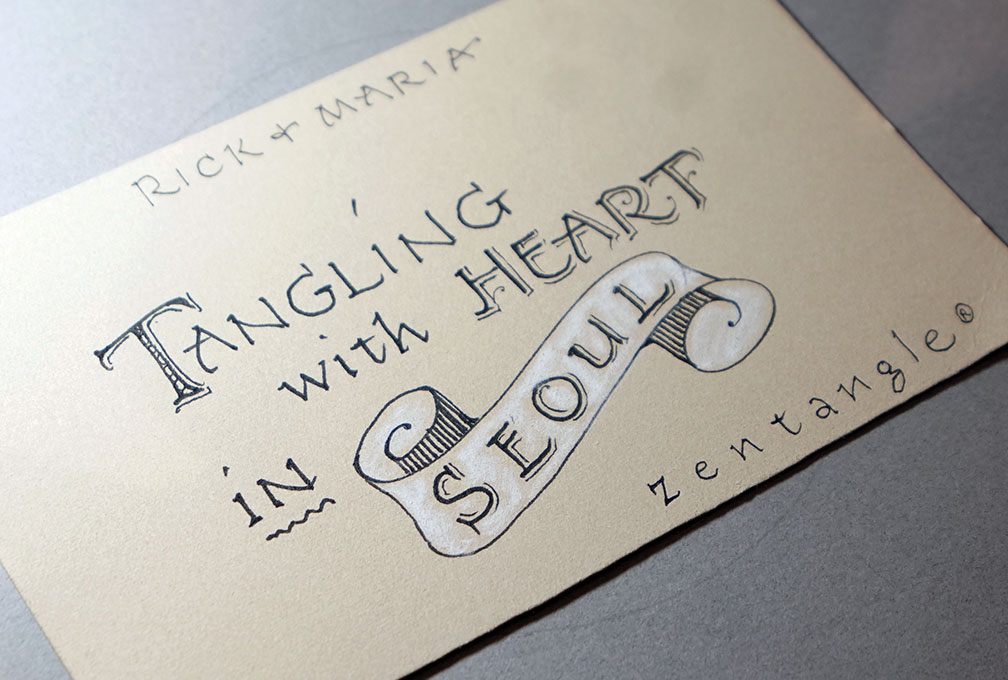 RICK + MARIA
TANGLING
with HEART
iN SEOUL
zentangle®